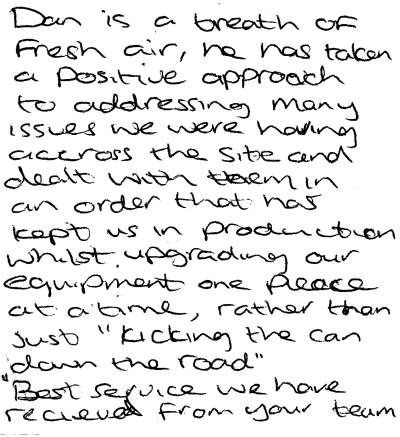 Dan is a breath of
Fresh air, he has taken
a positive approach
to addressing many
issues we were having
accross the site and
dealt with them in
an order that has
kept us in production
whilst upgrading our
equipment one pleace
at a time, rather than
just "kicking the can
down the road"
"Best service we have
recieved from your team